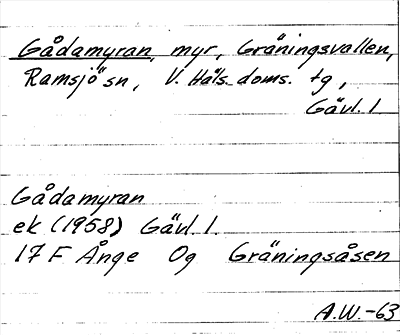 Gådamyran, myr, Gräningsvallen,
Ramsjö sn, V. Häls. doms. tg,
Gävl. l.
Gådamyran
ek (1958) Gävl. l.
17 F Ånge Og Gräningsåsen
A.W.-63